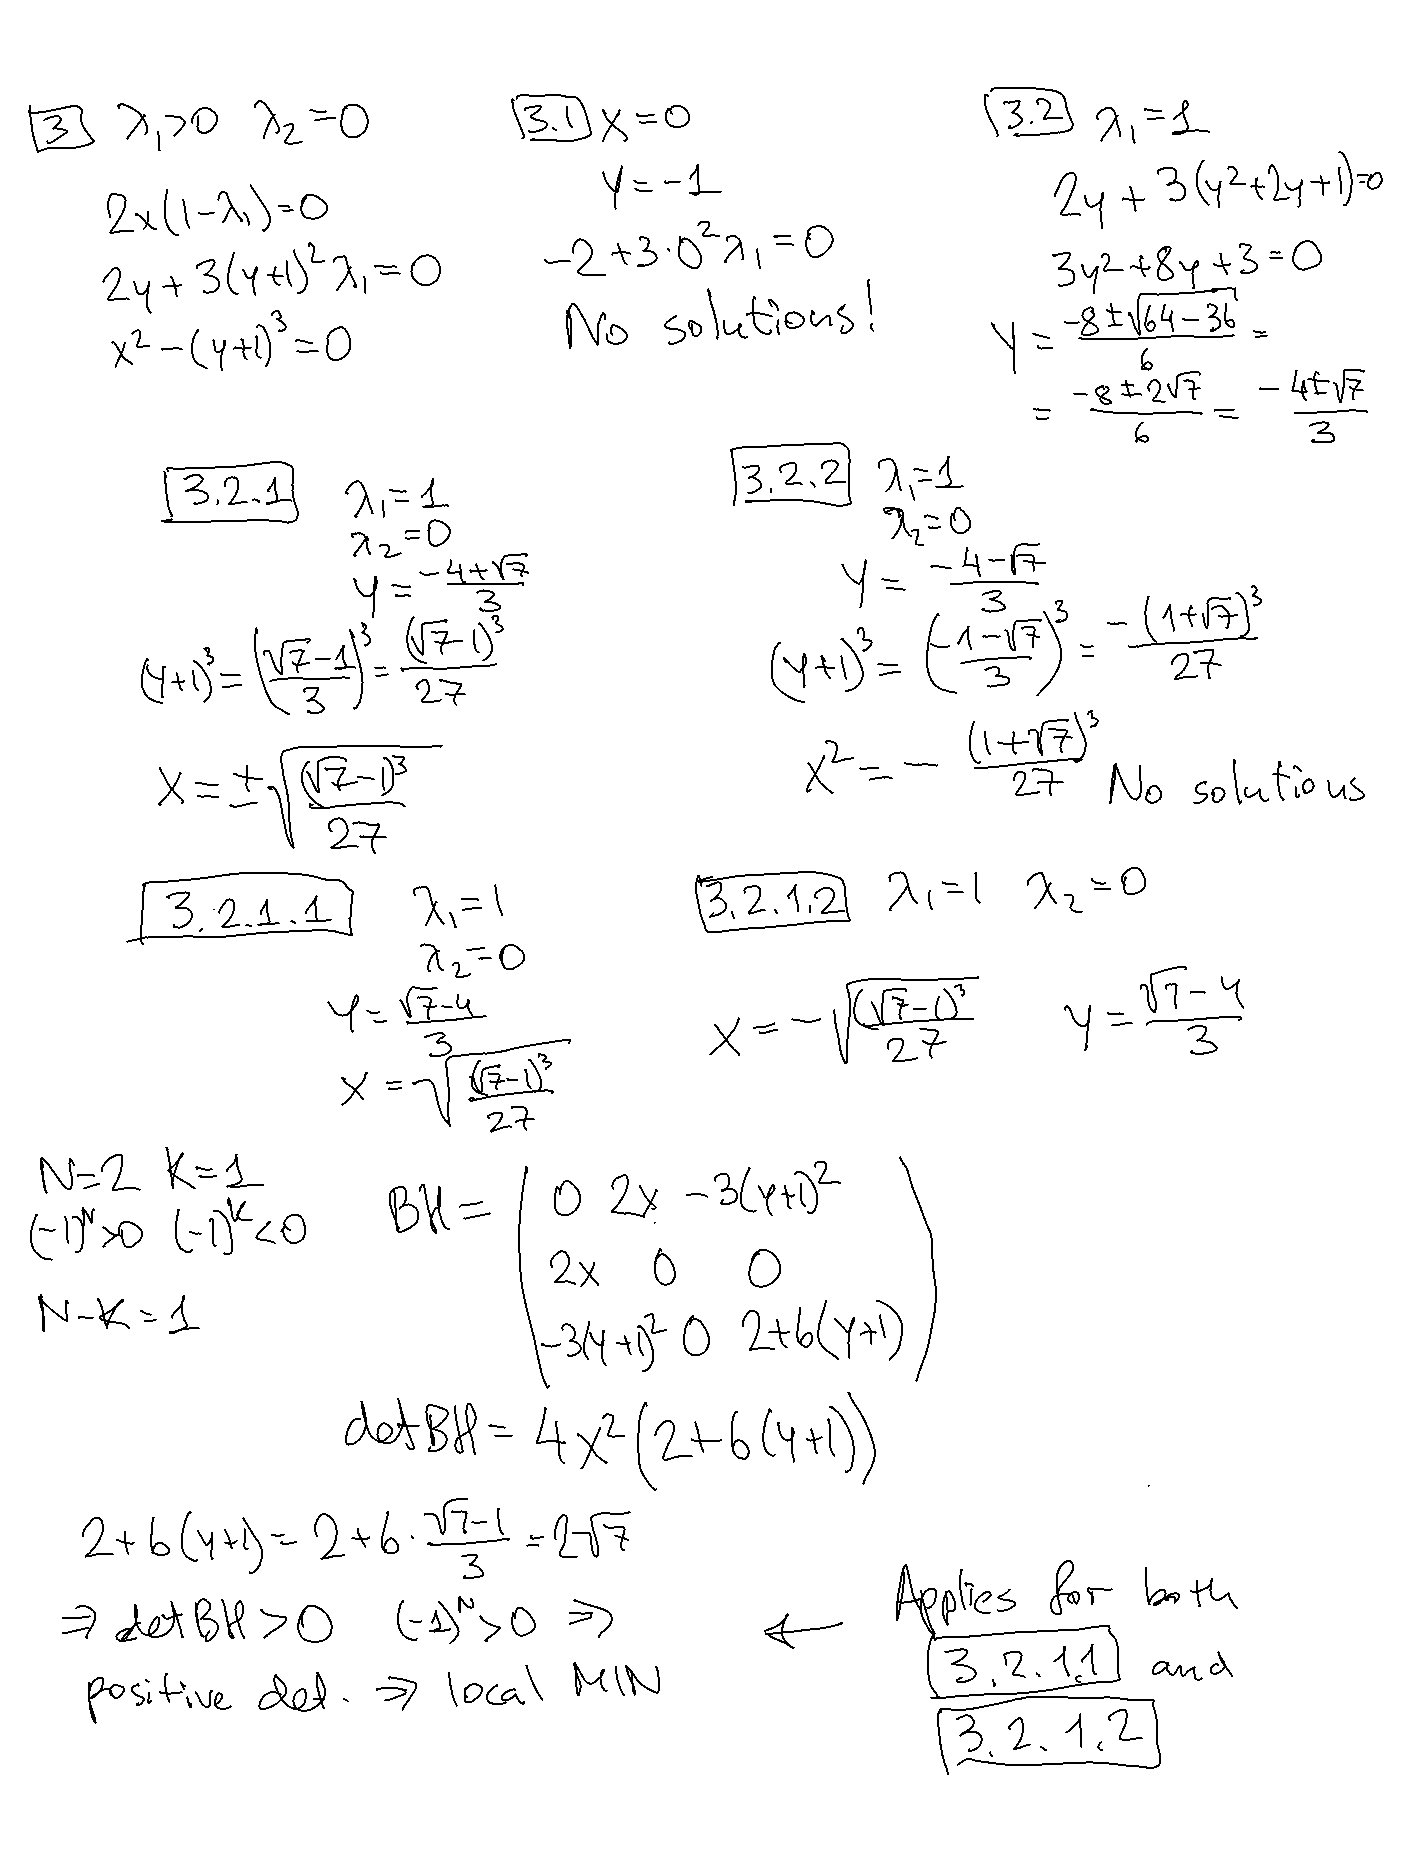 3 λ₁>0 λ₂=0
2x(1-λ₁)=0
2y+3(y+1)²λ₁=0
x²-(y+1)³=0
3.1 x=0
y=-1
-2+3·0²λ₁=0
No solutions!
3.2 λ₁=1
2y+3(y²+2y+1)=0
3y²+8y+3=0
y = (-8±√(64-36))/6 =
= (-8±2√7)/6 = (-4±√7)/3
3.2.1 λ₁=1
λ₂=0
y = (-4+√7)/3
(y+1)³ = ((√7-1)/3)³ = (√7-1)³/27
x = ±√((√7-1)³/27)
3.2.2 λ₁=1
λ₂=0
y = (-4-√7)/3
(y+1)³ = ((-1-√7)/3)³ = -(1+√7)³/27
x² = -(1+√7)³/27 No solutions
3.2.1.1 λ₁=1
λ₂=0
y = (√7-4)/3
x = √((√7-1)³/27)
3.2.1.2 λ₁=1 λ₂=0
x = -√((√7-1)³/27) y = (√7-4)/3
N=2 K=1
(-1)ᴺ>0 (-1)ᴷ<0
N-K=1
BH = ( 0 2x -3(y+1)²
2x 0 0
-3(y+1)² 0 2+6(y+1) )
det BH = 4x²(2+6(y+1))
2+6(y+1) = 2+6·(√7-1)/3 = 2√7
⇒ det BH > 0 (-1)ᴺ>0 ⇒
positive def. ⇒ local MIN
← Applies for both
3.2.1.1 and
3.2.1.2